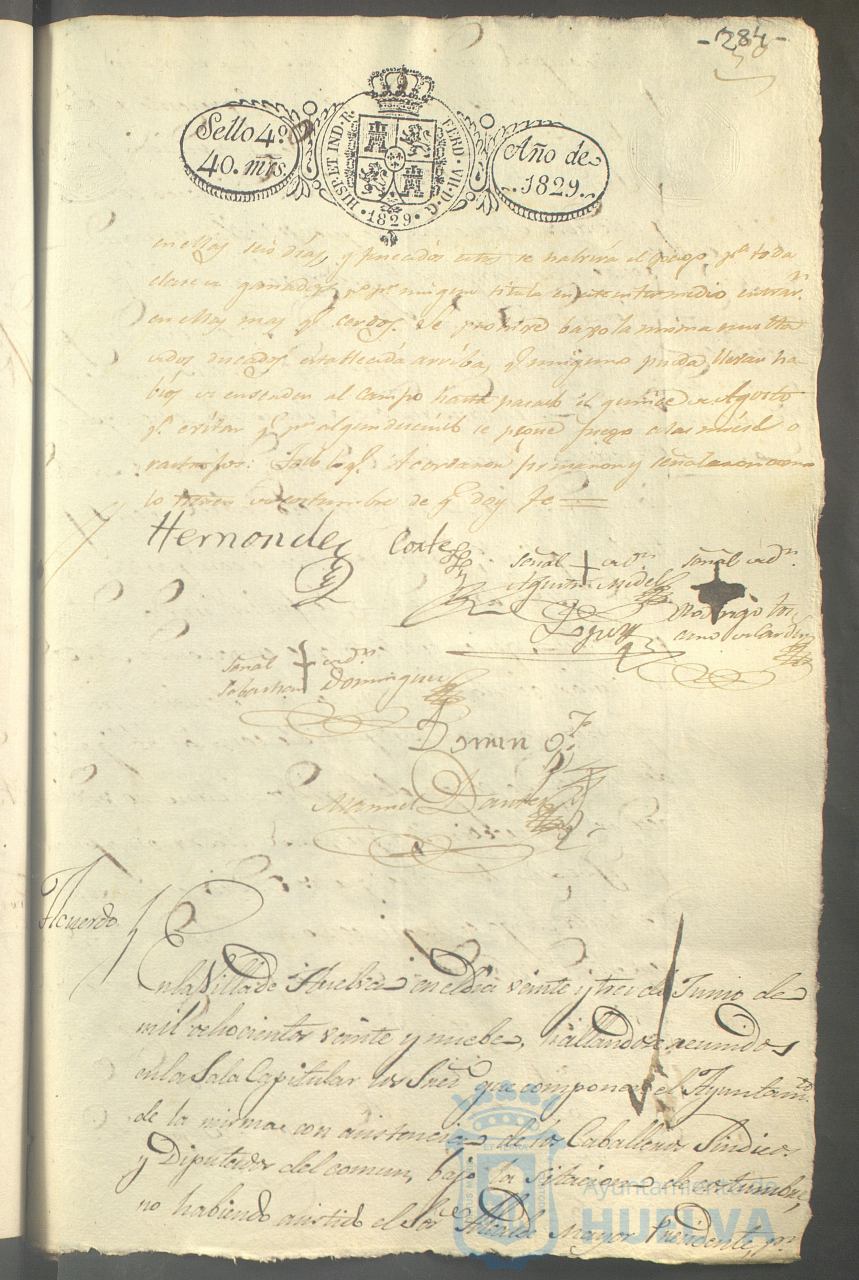 -284-
50
Sello 4º
40. mrs
HISP. ET IND. R.
FERD. VII. D. G.
1829
Año de
1829.
en ellas seis dias, y pasados estos se habrirá el pago pª toda
clase de ganados, pº pr. ningun titulo en este intermedio entrarn
en ellas mas qe cerdos. Se prohive bajo la misma multa
de dos ducados establecida arriba, qe ninguno pueda llevar ha
bíos de encender al campo hasta pasado el quince de Agosto
pª evitar qe pr algun descuido se pegue fuego a las mieses o
rastrojos: Todo lo qe Acordaron firmaron y señalaron como
lo tienen de costumbre de qe doy fe
Hernandez
Cortes
Señal de dn
Agustin
Lopez
Señal de dn
Rodrigo
Señal de dn
Sebastian Dominguez
Domin
Manuel
Acuerdo
En la Villa de Huelva en el dia veinte y tres de Junio de
mil ochocientos veinte y nuebe, hallandose reunidos
en la Sala Capitular los Sres que componen el Ayuntamto
de la misma con asistencia de los Caballeros Sindicos
y Diputados del comun, bajo la sitacion de costumbre,
no habiendo asistido el Sor Alcalde Mayor Presidente, pr
Ayuntamiento de
HUELVA